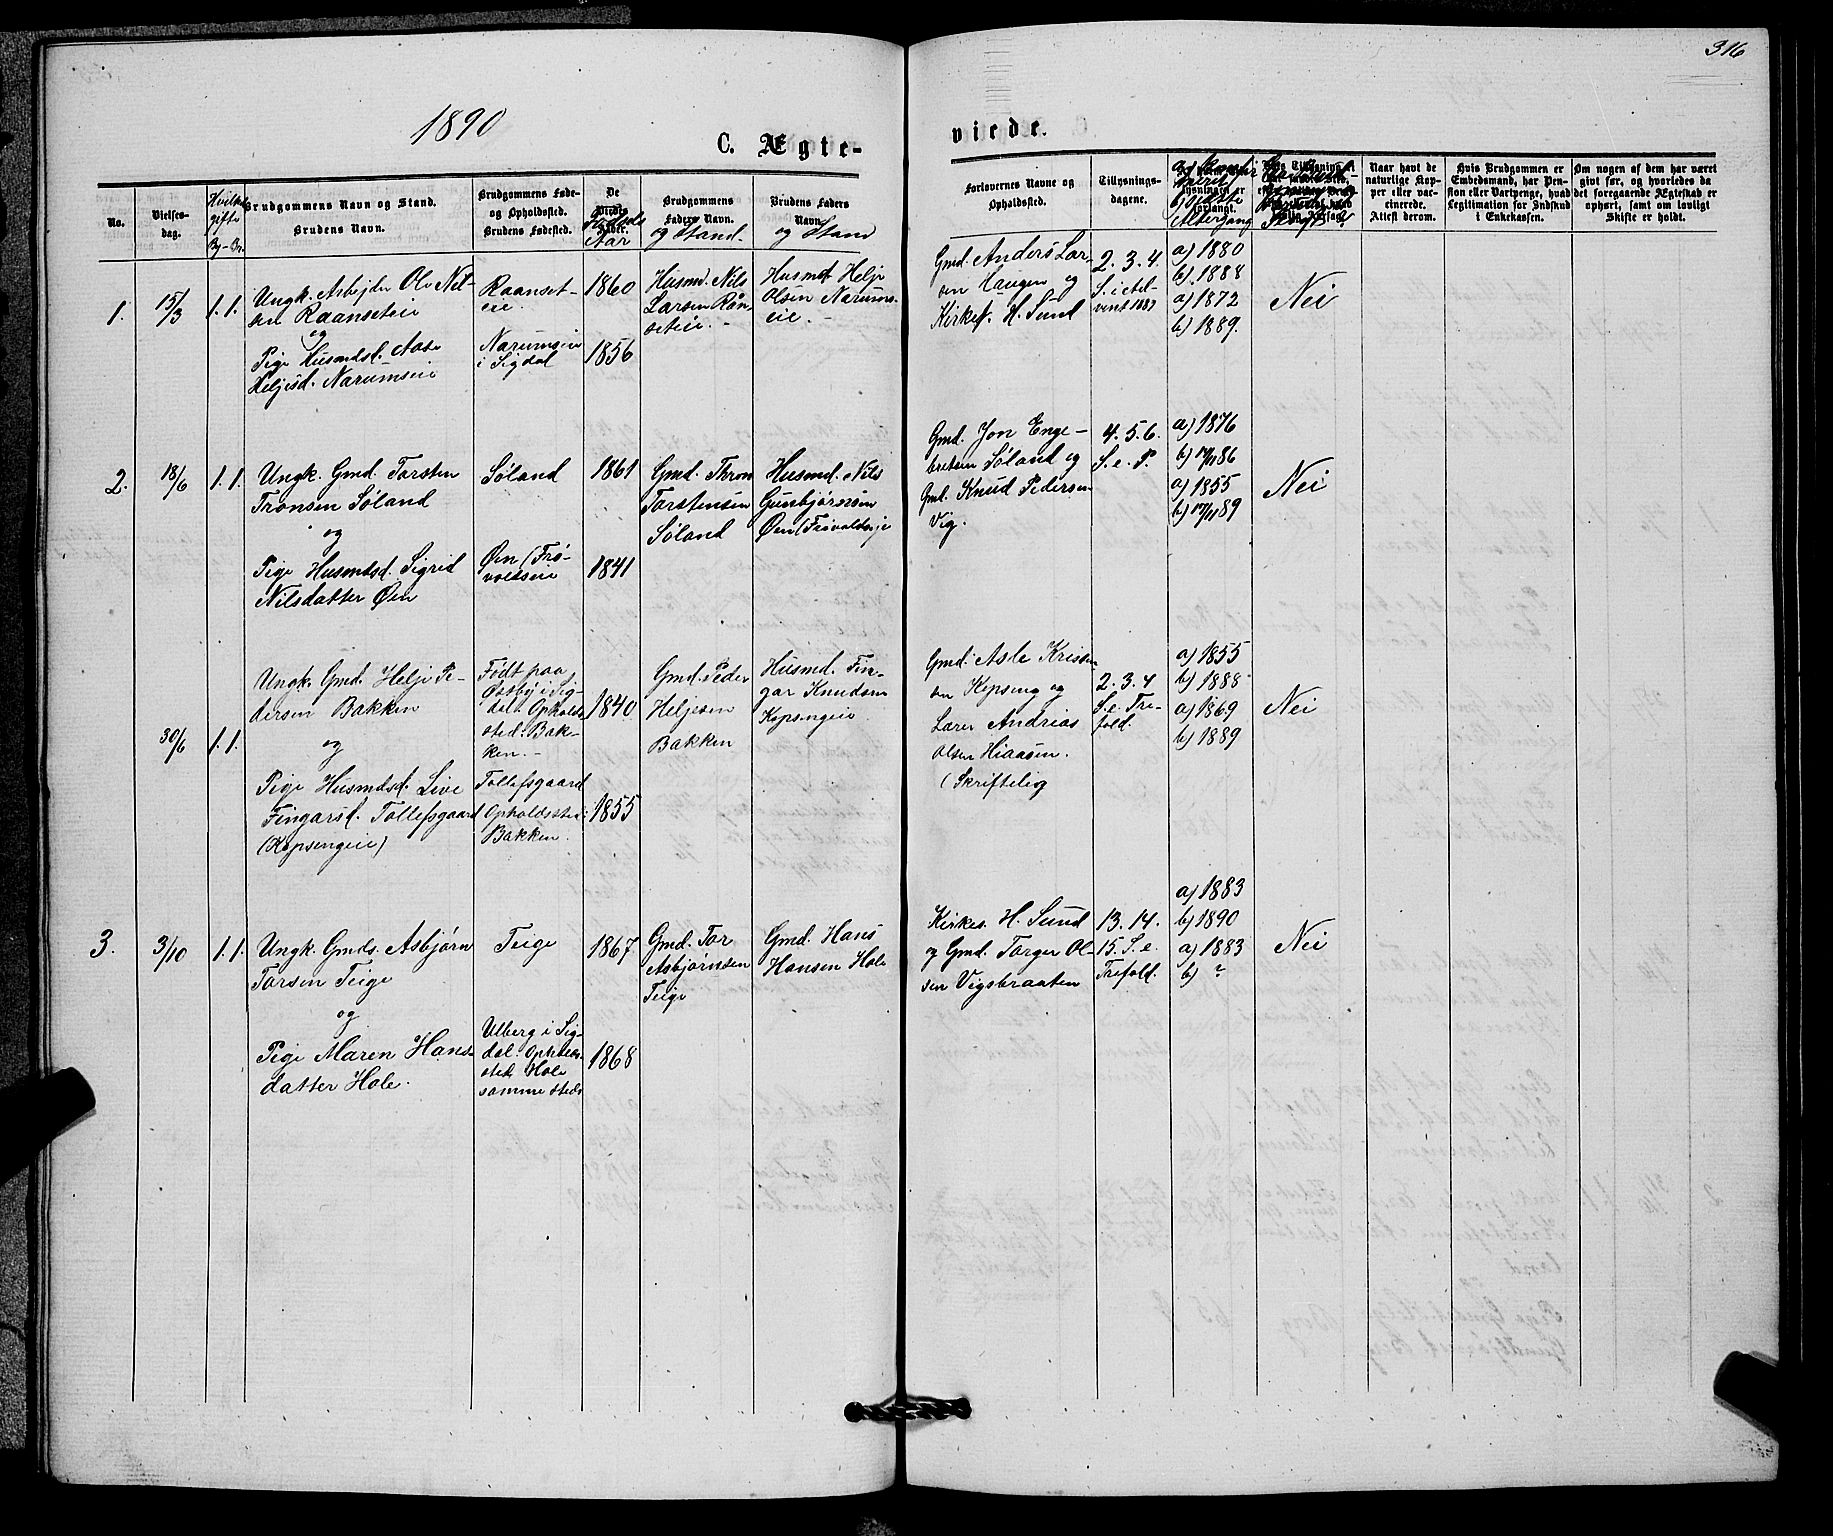 316
1890
C. Ægte-
viede.
No.
Vielses-
dag.
By - Br.
Brudgommens Navn og Stand.
Brudens Navn.
Brudgommens Føde-
og Opholdssted.
Brudens Fødested.
De
Viede
Fødsels
Aar
Brudgommens
Faders Navn.
og Stand.
Brudens Faders
Navn.
og Stand
Forlovernes Navne og
Opholdssted.
Tillysnings-
dagene.
Naar havt de
naturlige Kop-
per eller vac-
cinerede.
Attest derom.
Hvis Brudgommen er
Embedsmand, har Pen-
sion eller Vartpenge, hvad
Legitimation for Indskud
i Enkekassen.
Om nogen af dem har været
gift før, og hvorledes da
det foregaaende Ægteskab er
ophørt, samt om lovligt
Skifte er holdt.
1.
15/3
1. 1.
Ungk. Arbejder Ole Nil-
sen Raanseteie
og
Pige Husmdsd. Aase
Heljesd. Narumseie
Raanset-
eie.
Narumseie
i Sigdal
1860
1856
Husmd. Nils
Larsen Rån-
seteie. -
Husmd. Helje
Olsen Narums-
eie. -
Gmd. Anders Lar-
sen Haugen og
Kirkes. H. Sund
2. 3. 4.
S. i Ad-
vent 1889
a) 1880
b) 1888
a) 1872
b) 1889.
Nei
2.
18/6
1. 1.
Ungk. Gmd. Torsten
Tronsen Søland
og
Pige Husmdsd. Sigrid
Nilsdatter Øen
Søland
Øen (Frø-
voldseie
1861
1841
Gmd. Thron
Torstensen
Søland
Husmd. Nils
Gunbjørnsen
Øen (Frøvoldseje
Gmd. Jon Enge-
bretsen Søland og
Gmd. Knud Pedersen
Vig.
4. 5. 6.
S. e. P.
a) 1876
b) 17/11 86
a) 1855
b) 17/11 89
Nei
30/6
1. 1.
Ungk. Gmd. Helje Pe-
dersen Bakken
og
Pige Husmdsd. Live
Fingarsd. Tollefsgaard
(Kopsengeie)
Født paa
i Sig-
dal. Opholds-
sted: Bak-
ken. -
Tollefsgaard
Opholdssted:
Bakken.
1840
1855
Gmd. Peder
Heljesen
Bakken
Husmd. Fin-
gar Knudsen
Kopsengeie.
Gmd. Asle Kristen-
sen Kopseng og
Lærer Andrias
Olsen Hiaasen.
(Skriftelig
2. 3. 4
S. e. Tre-
fold.
a) 1855
b) 1888
a) 1869
b) 1889
Nei
3.
3/10
1. 1.
Ungk. Gmds. Asbjørn
Torsen Teige
og
Pige Maren Hans-
datter Hole.
Teige
Ulberg i Sig-
dal. Opholds-
sted Hole
samme steds
1867
1868
Gmd. Tor
Asbjørnsen
Teige
Gmd. Hans
Hansen Hole
Kirkes. H. Sund
og Gmd. Torger Ol-
sen Vigsbraaten
13. 14.
15. S. e.
Trefold.
a) 1883
b) 1890
a) 1883
b) ?
Nei